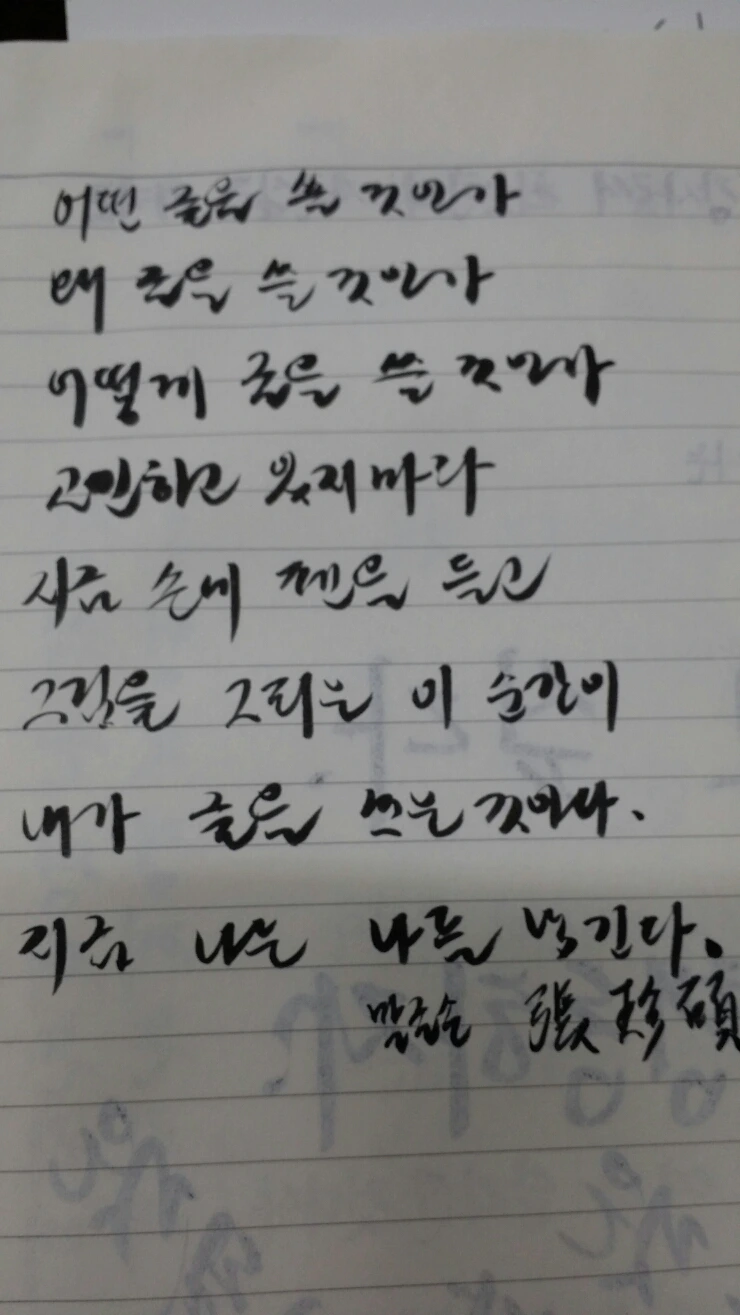 어떤 글을 쓸 것인가
왜 글을 쓸 것인가
어떻게 글을 쓸 것인가
고민하고 있지마라
지금 손에 펜을 들고
그림을 그리는 이 순간이
내가 글을 쓰는 것이다.
지금 나는 나를 넘긴다.
말글손 張珍碩